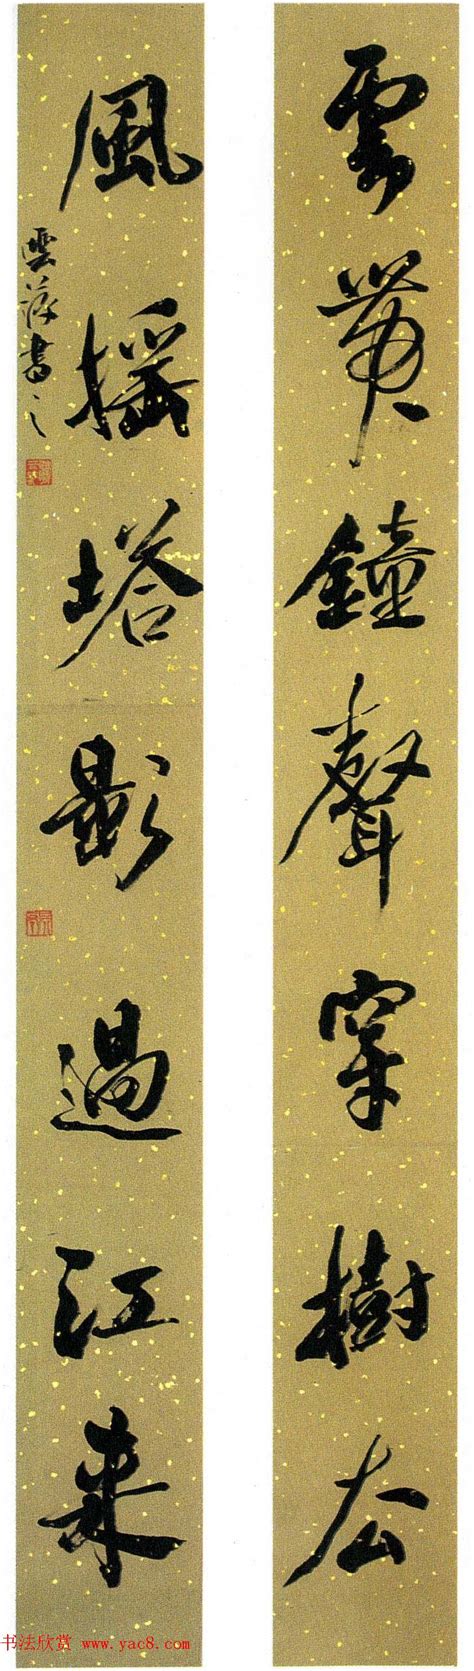 雲帶鐘聲穿樹去
風搖塔影過江来
雲龍書之
书法欣赏 www.yac8.com